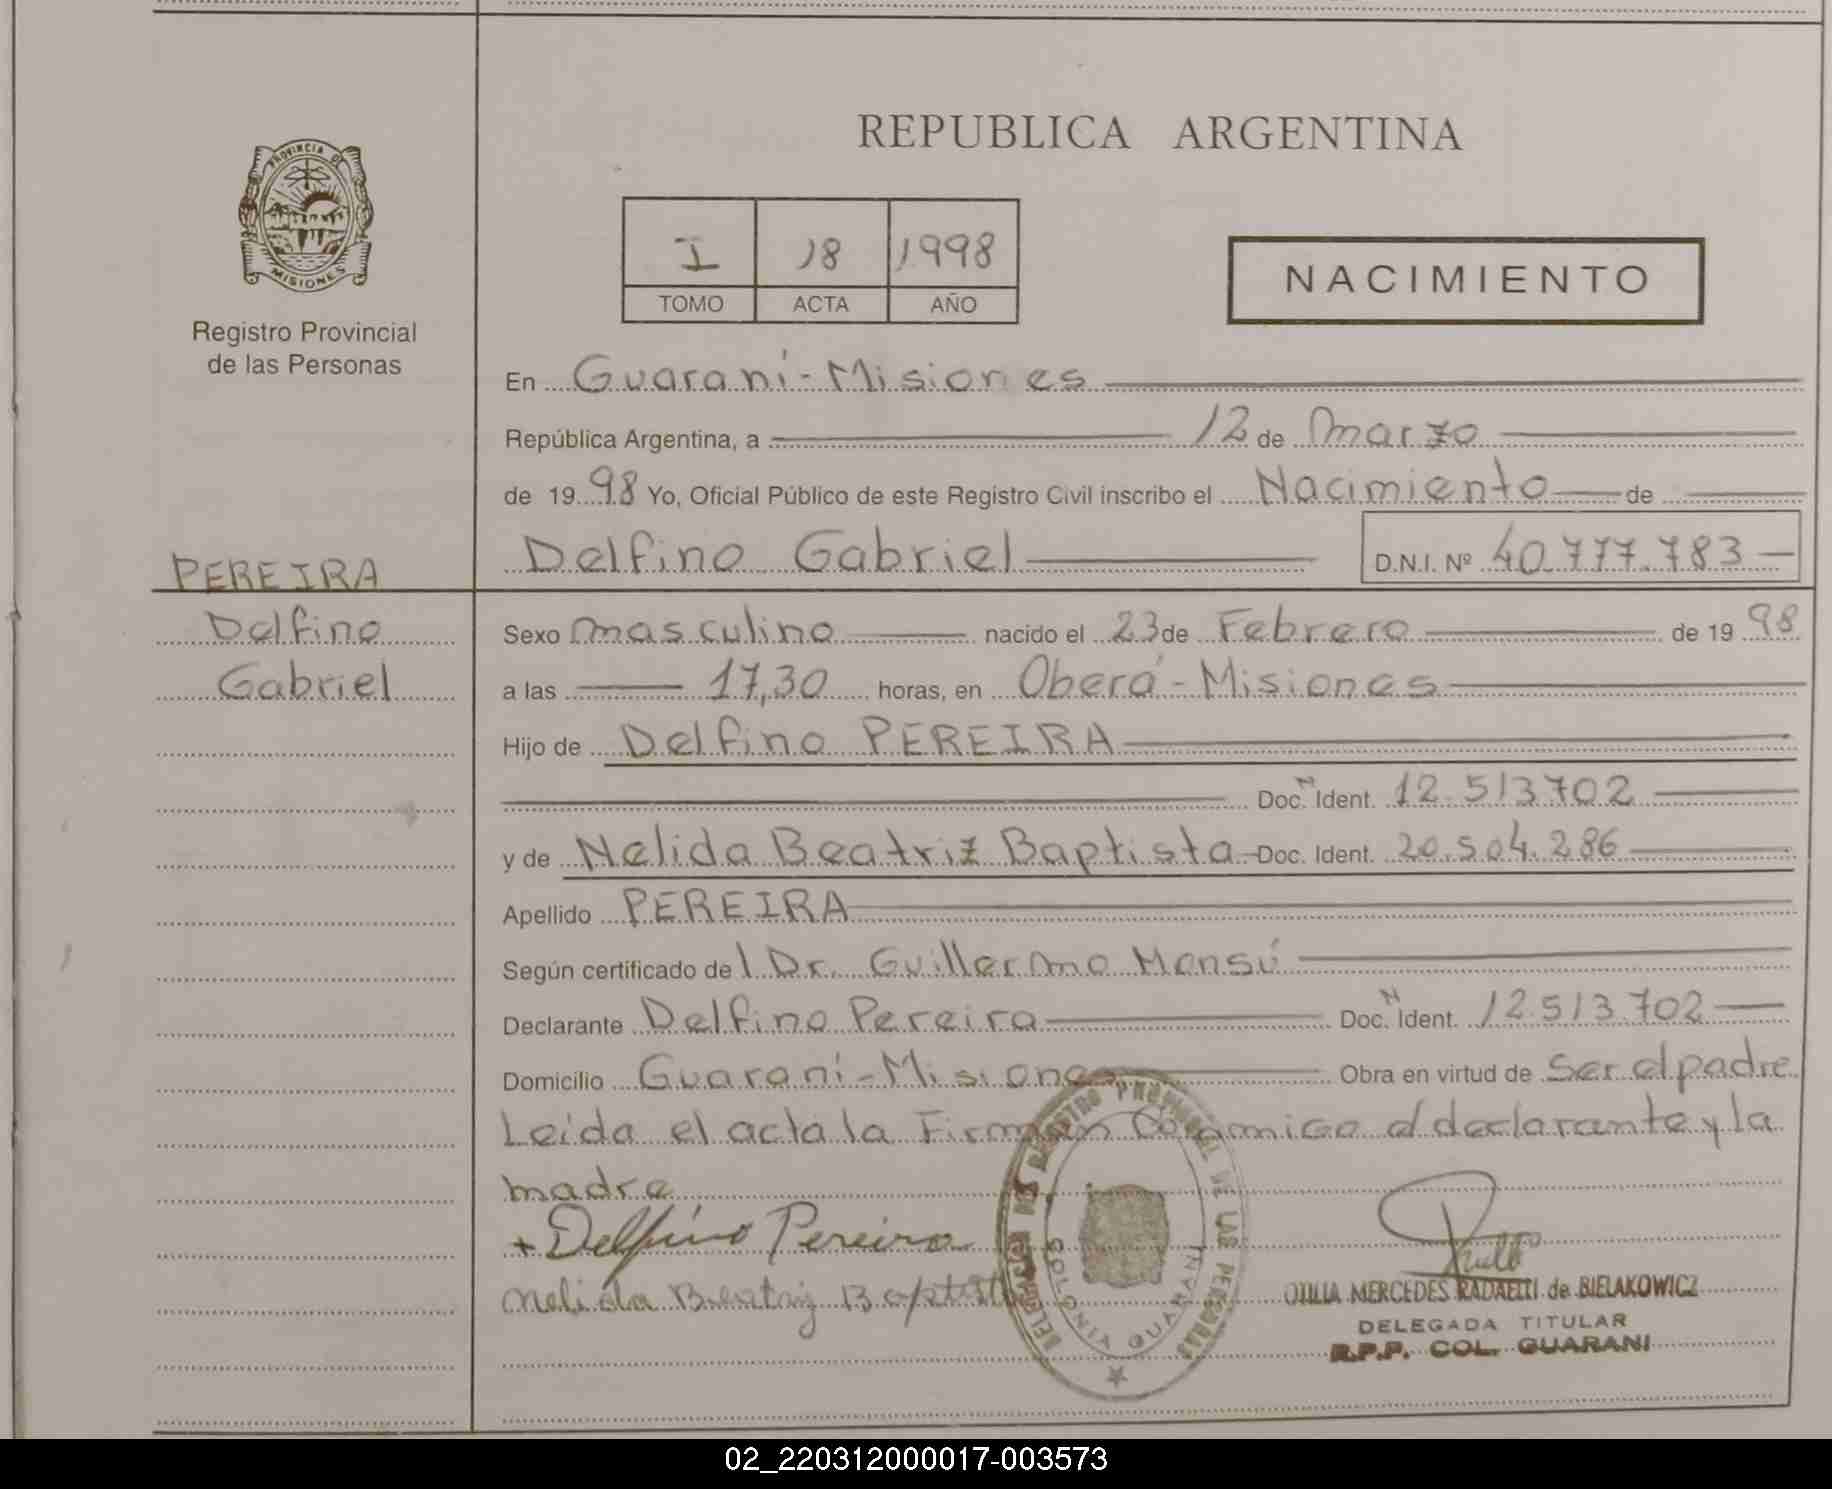 REPUBLICA ARGENTINA
PROVINCIA DE
MISIONES
Registro Provincial
de las Personas
I 18 1998
TOMO ACTA AÑO
NACIMIENTO
En Guaraní - Misiones
República Argentina, a 12 de Marzo
de 1998 Yo, Oficial Público de este Registro Civil inscribo el Nacimiento de
Delfino Gabriel D.N.I. Nº 40.777.783
PEREIRA
Delfino
Gabriel
Sexo masculino nacido el 23 de Febrero de 1998
a las 17,30 horas, en Oberá - Misiones
Hijo de Delfino PEREIRA
Doc. N Ident. 12.513.702
y de Nelida Beatriz Baptista Doc. Ident. 20.504.286
Apellido PEREIRA
Según certificado del Dr. Guillermo Mensú
Declarante Delfino Pereira Doc. N Ident. 12.513.702
Domicilio Guaraní - Misiones Obra en virtud de Ser el padre
Leida el acta la Firman Conmigo el declarante y la
madre
+ Delfino Pereira
Nelida Beatriz Baptista
REGISTRO PROVINCIAL DE LAS PERSONAS
COLONIA GUARANI
OTILIA MERCEDES RADAELLI de BIELAKOWICZ
DELEGADA TITULAR
R.P.P. COL. GUARANI
02_220312000017-003573